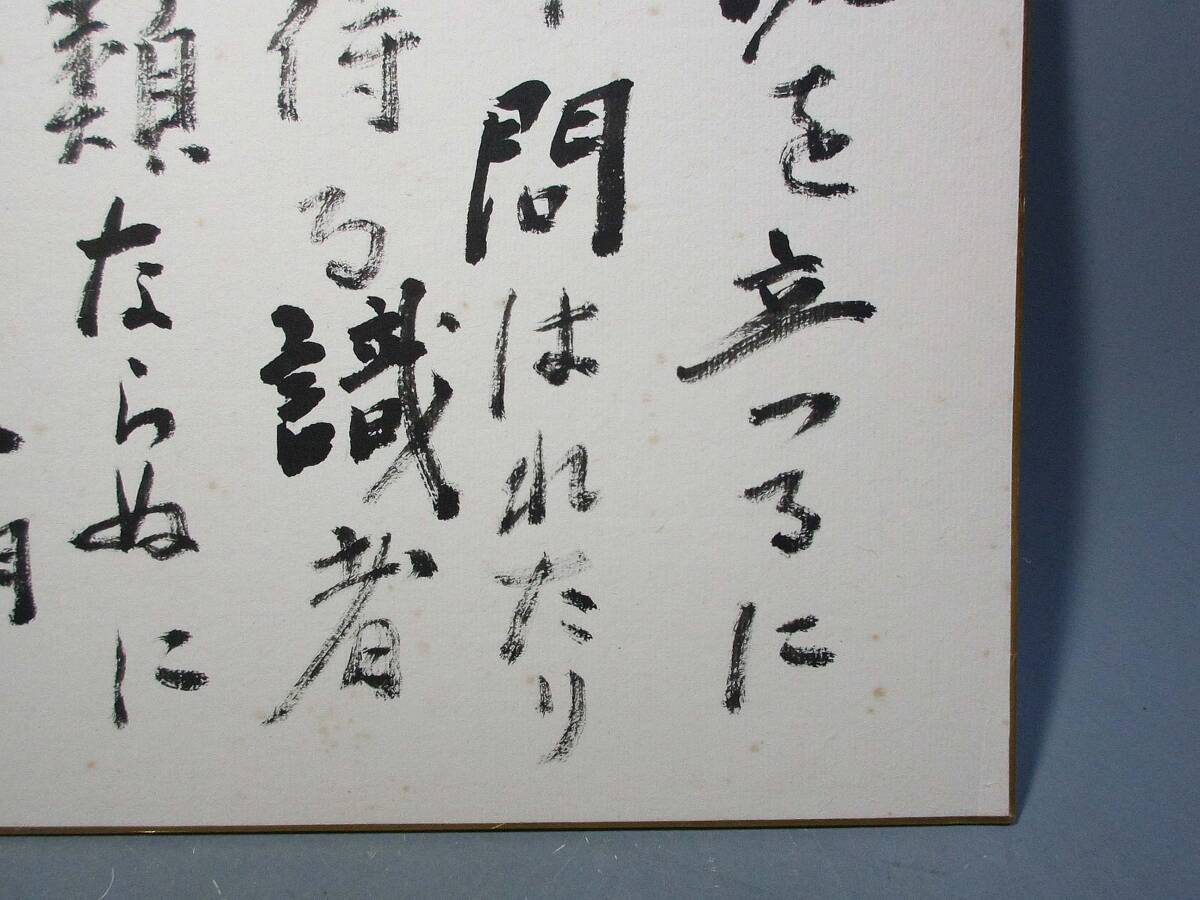 を立つるに
問はれたり
侍る識者
類ならぬに